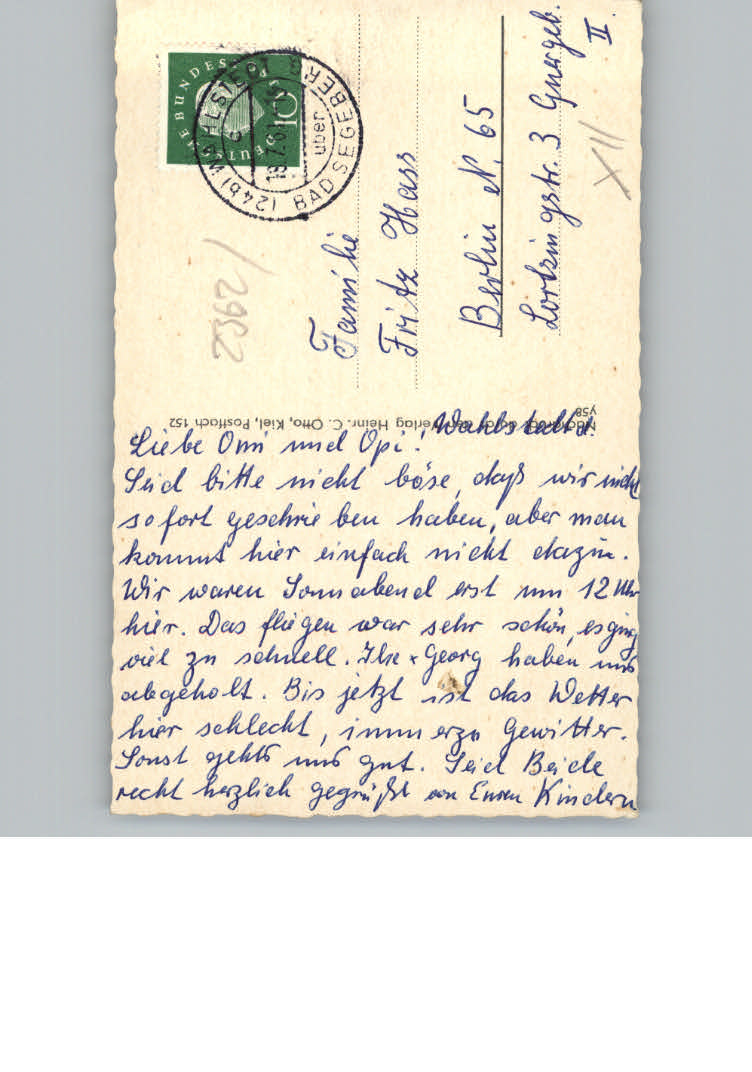 DEUTSCHE BUNDESPOST
10
(24b) WAHLSTEDT
über
BAD SEGEBERG
19.7.61
2952/
XII/
Familie
Fritz Hass
Berlin N. 65
Lortzingstr. 3
II.
Verlag Heinr. C. Otto, Kiel, Postfach 152
y58
Wahlstedt d.
Liebe Omi und Opi!
Seid bitte nicht böse, daß wir nicht
sofort geschrieben haben, aber man
kommt hier einfach nicht dazu.
Wir waren Sonnabend erst um 12 Uhr
hier. Das fliegen war sehr schön, es ging
viel zu schnell. Ilse + Georg haben uns
abgeholt. Bis jetzt ist das Wetter
hier schlecht, immerzu Gewitter.
Sonst gehts uns gut. Seid Beide
recht herzlich gegrüßt von Euren Kindern